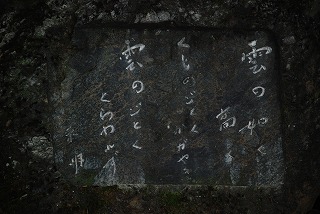 雲の如く
高く
くものごとく
かがやき
雲のごとく
とらわれず
未明